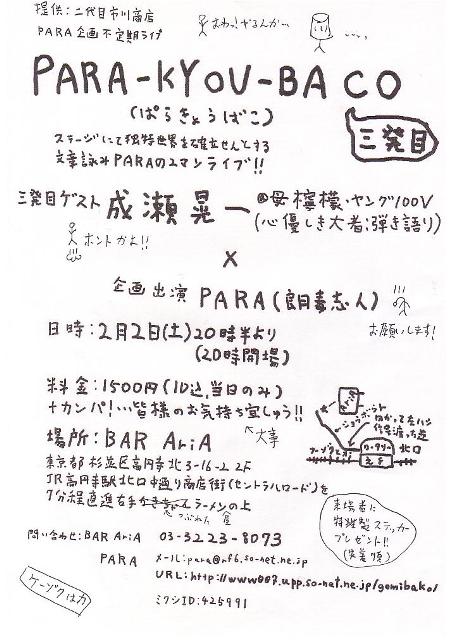 提供:二代目市川商店
PARA企画不定期ライブ
おわっ!やるんか…
PARA-KYOU-BACO
(ぱらきょうばこ)
三発目
ステージにて独特世界を確立せんとする
文章詠みPARAの2マンライブ!!
三発目ゲスト 成瀬晃一 @母檸檬・ヤング100V
(心優しき大者:弾き語り)
ホントかよ!!
×
企画出演 PARA(朗毒志人)
お願いします!
日時:2月2日(土)20時半より
(20時開場)
料金:1500円(1D込,当日のみ)
+カンパ!…皆様のお気持ち宜しう!!
大事
場所:BAR AriA
東京都杉並区高円寺北3-16-2 2F
JR高円寺駅北口中通り商店街(セントラルロード)を
7分程直進右手 ラーメンの上
北口
問い合わせ:BAR AriA 03-3223-8073
PARA メール:para@rf6.so-net.ne.jp
URL:http://www007.upp.so-net.ne.jp/gomibako/
ミクシID:425991
来場者に
特製ステッカー
プレゼント!!
(先着順)
ケーゾクは力